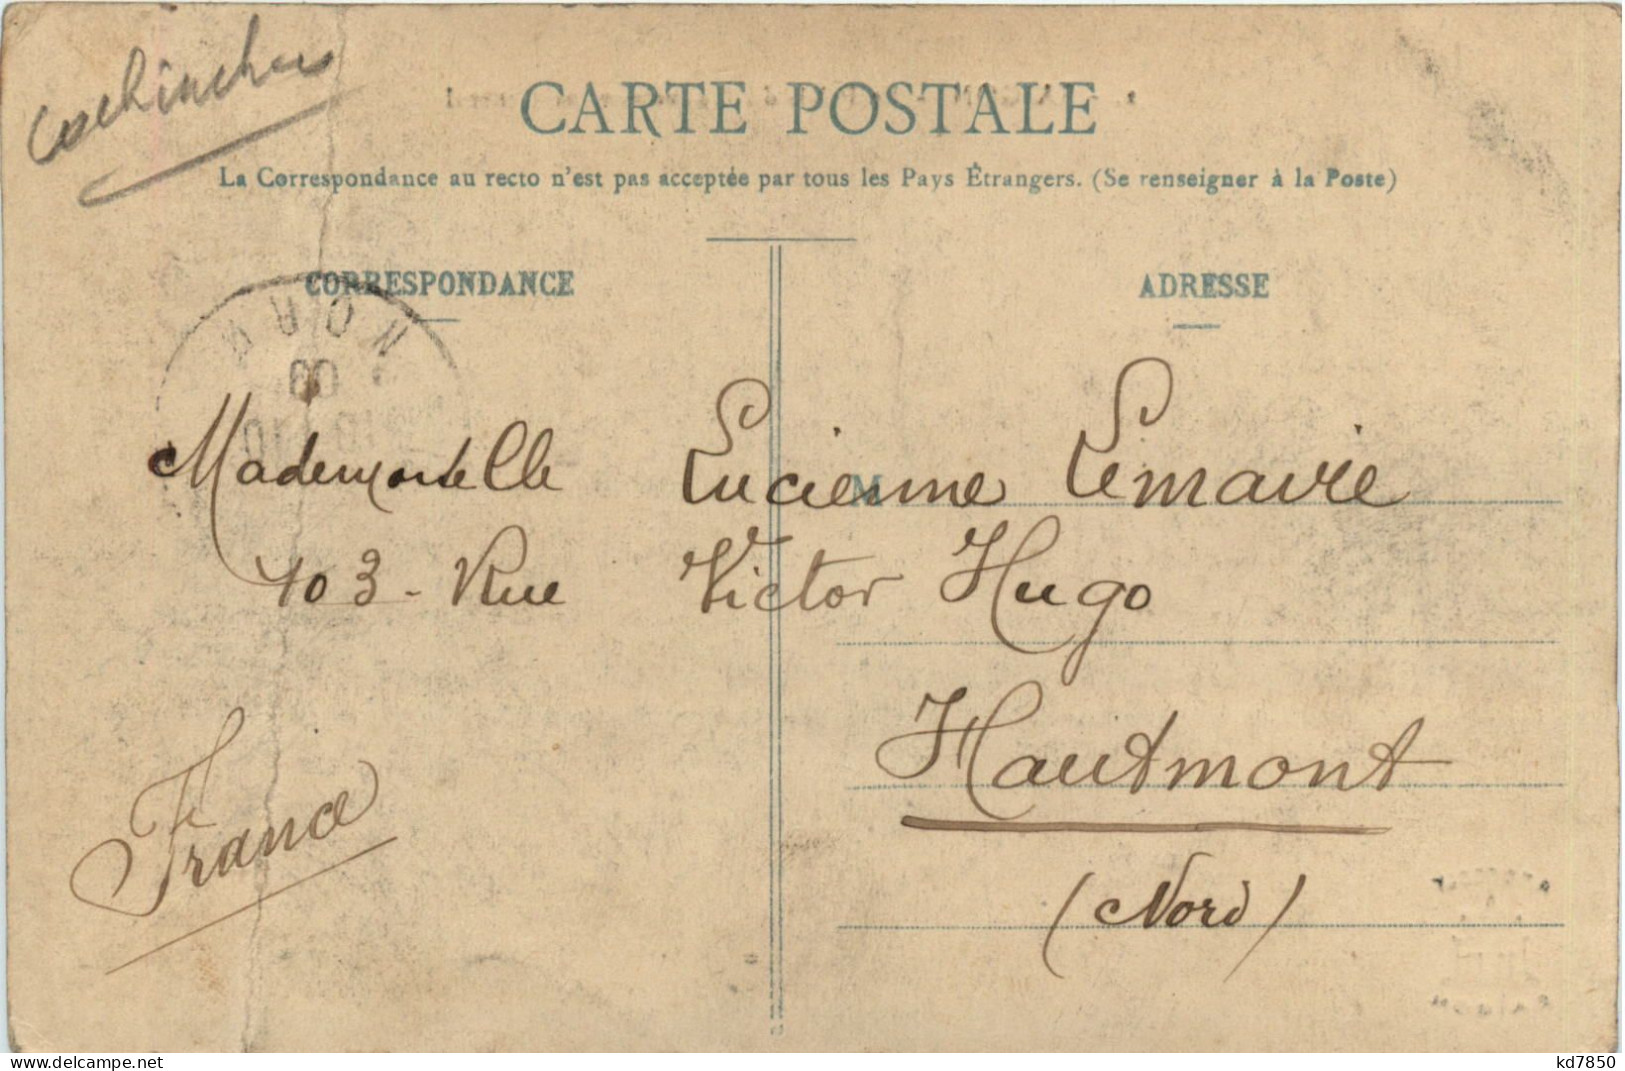 Cochinchine
CARTE POSTALE
La Correspondance au recto n'est pas acceptée par tous les Pays Étrangers. (Se renseigner à la Poste)
CORRESPONDANCE
ADRESSE
M
Mademoiselle Lucienne Lemaire
103 - Rue Victor Hugo
Hautmont
(Nord)
France
www.delcampe.net
kd7850